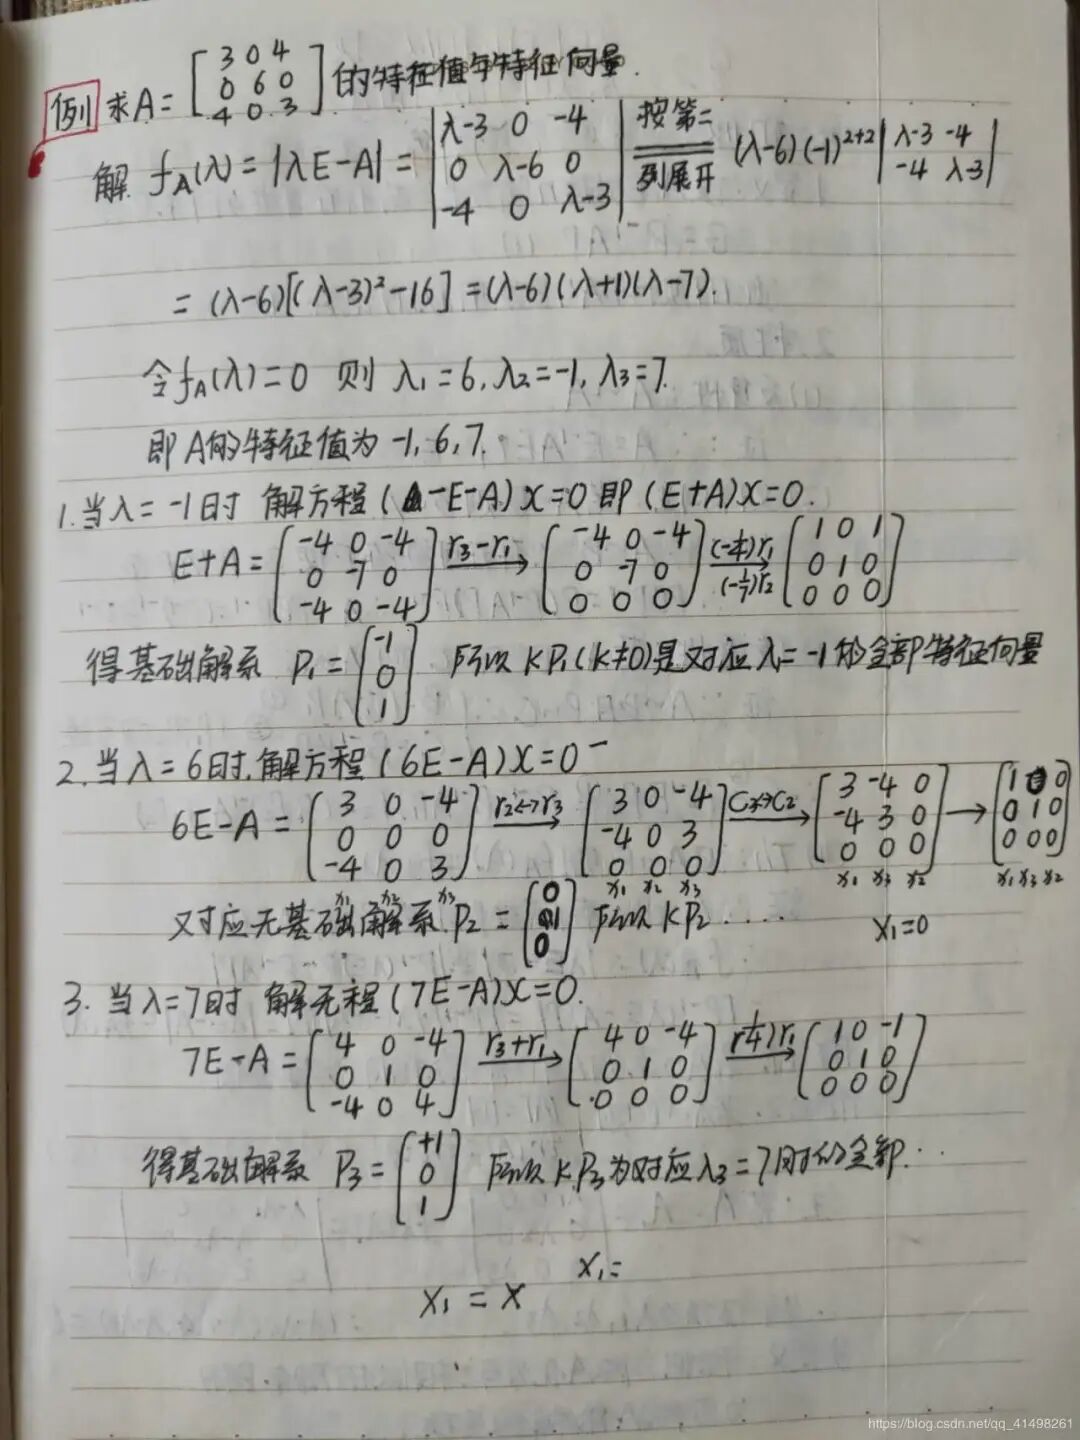 例 求A= [3 0 4; 0 6 0; 4 0 3] 的特征值与特征向量.
解 f_A(λ)=|λE-A|= |λ-3 0 -4; 0 λ-6 0; -4 0 λ-3| 按第二列展开 (λ-6)(-1)^{2+2} |λ-3 -4; -4 λ-3|
=(λ-6)[(λ-3)²-16]=(λ-6)(λ+1)(λ-7).
令f_A(λ)=0 则 λ₁=6,λ₂=-1,λ₃=7.
即A的特征值为-1,6,7.
1.当λ=-1时 解方程(-E-A)x=0即(E+A)X=0.
E+A= [-4 0 -4; 0 -7 0; -4 0 -4] r₃-r₁→ [-4 0 -4; 0 -7 0; 0 0 0] (-1/4)r₁ (-1/7)r₂→ [1 0 1; 0 1 0; 0 0 0]
得基础解系 P₁= [-1; 0; 1] 所以KP₁(K≠0)是对应λ=-1的全部特征向量
2.当λ=6时.解方程(6E-A)X=0
6E-A= [3 0 -4; 0 0 0; -4 0 3] r₂↔r₃→ [3 0 -4; -4 0 3; 0 0 0] C₃↔C₂→ [3 -4 0; -4 3 0; 0 0 0] → [1 0 0; 0 1 0; 0 0 0]
x₁ x₂ x₃ x₁ x₂ x₃ x₁ x₃ x₂ x₁ x₃ x₂
对应无基础解系 P₂= [0; 1; 0] 所以KP₂..... X₁=0
3.当λ=7时 解无程(7E-A)X=0.
7E-A= [4 0 -4; 0 1 0; -4 0 4] r₃+r₁→ [4 0 -4; 0 1 0; 0 0 0] 1/4)r₁→ [1 0 -1; 0 1 0; 0 0 0]
得基础解系 P₃= [+1; 0; 1] 所以KP₃为对应λ₃=7时的全部...
X₁=
X₁=X
https://blog.csdn.net/qq_41498261